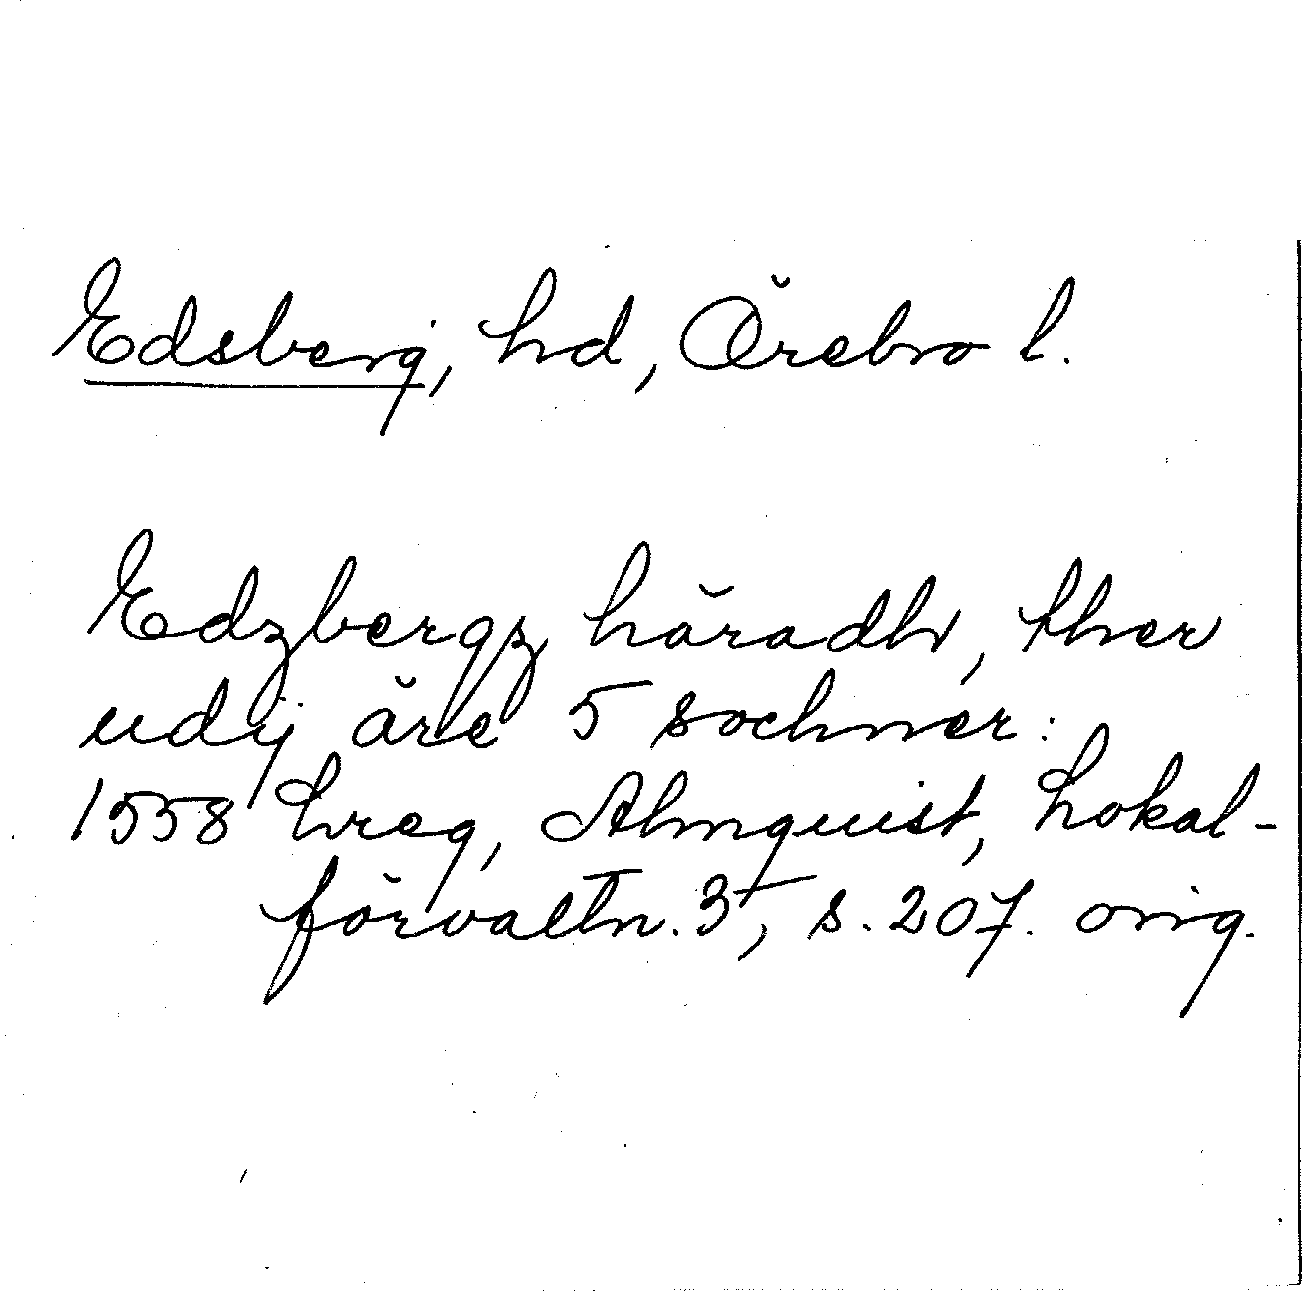 Edsberg, hd, Örebro l.
Edzbergz häradh, ther
udÿ äre 5 sochner:
1558 hreg, Almquist, Lokal-
förvaltn. 3, s. 207. orig.